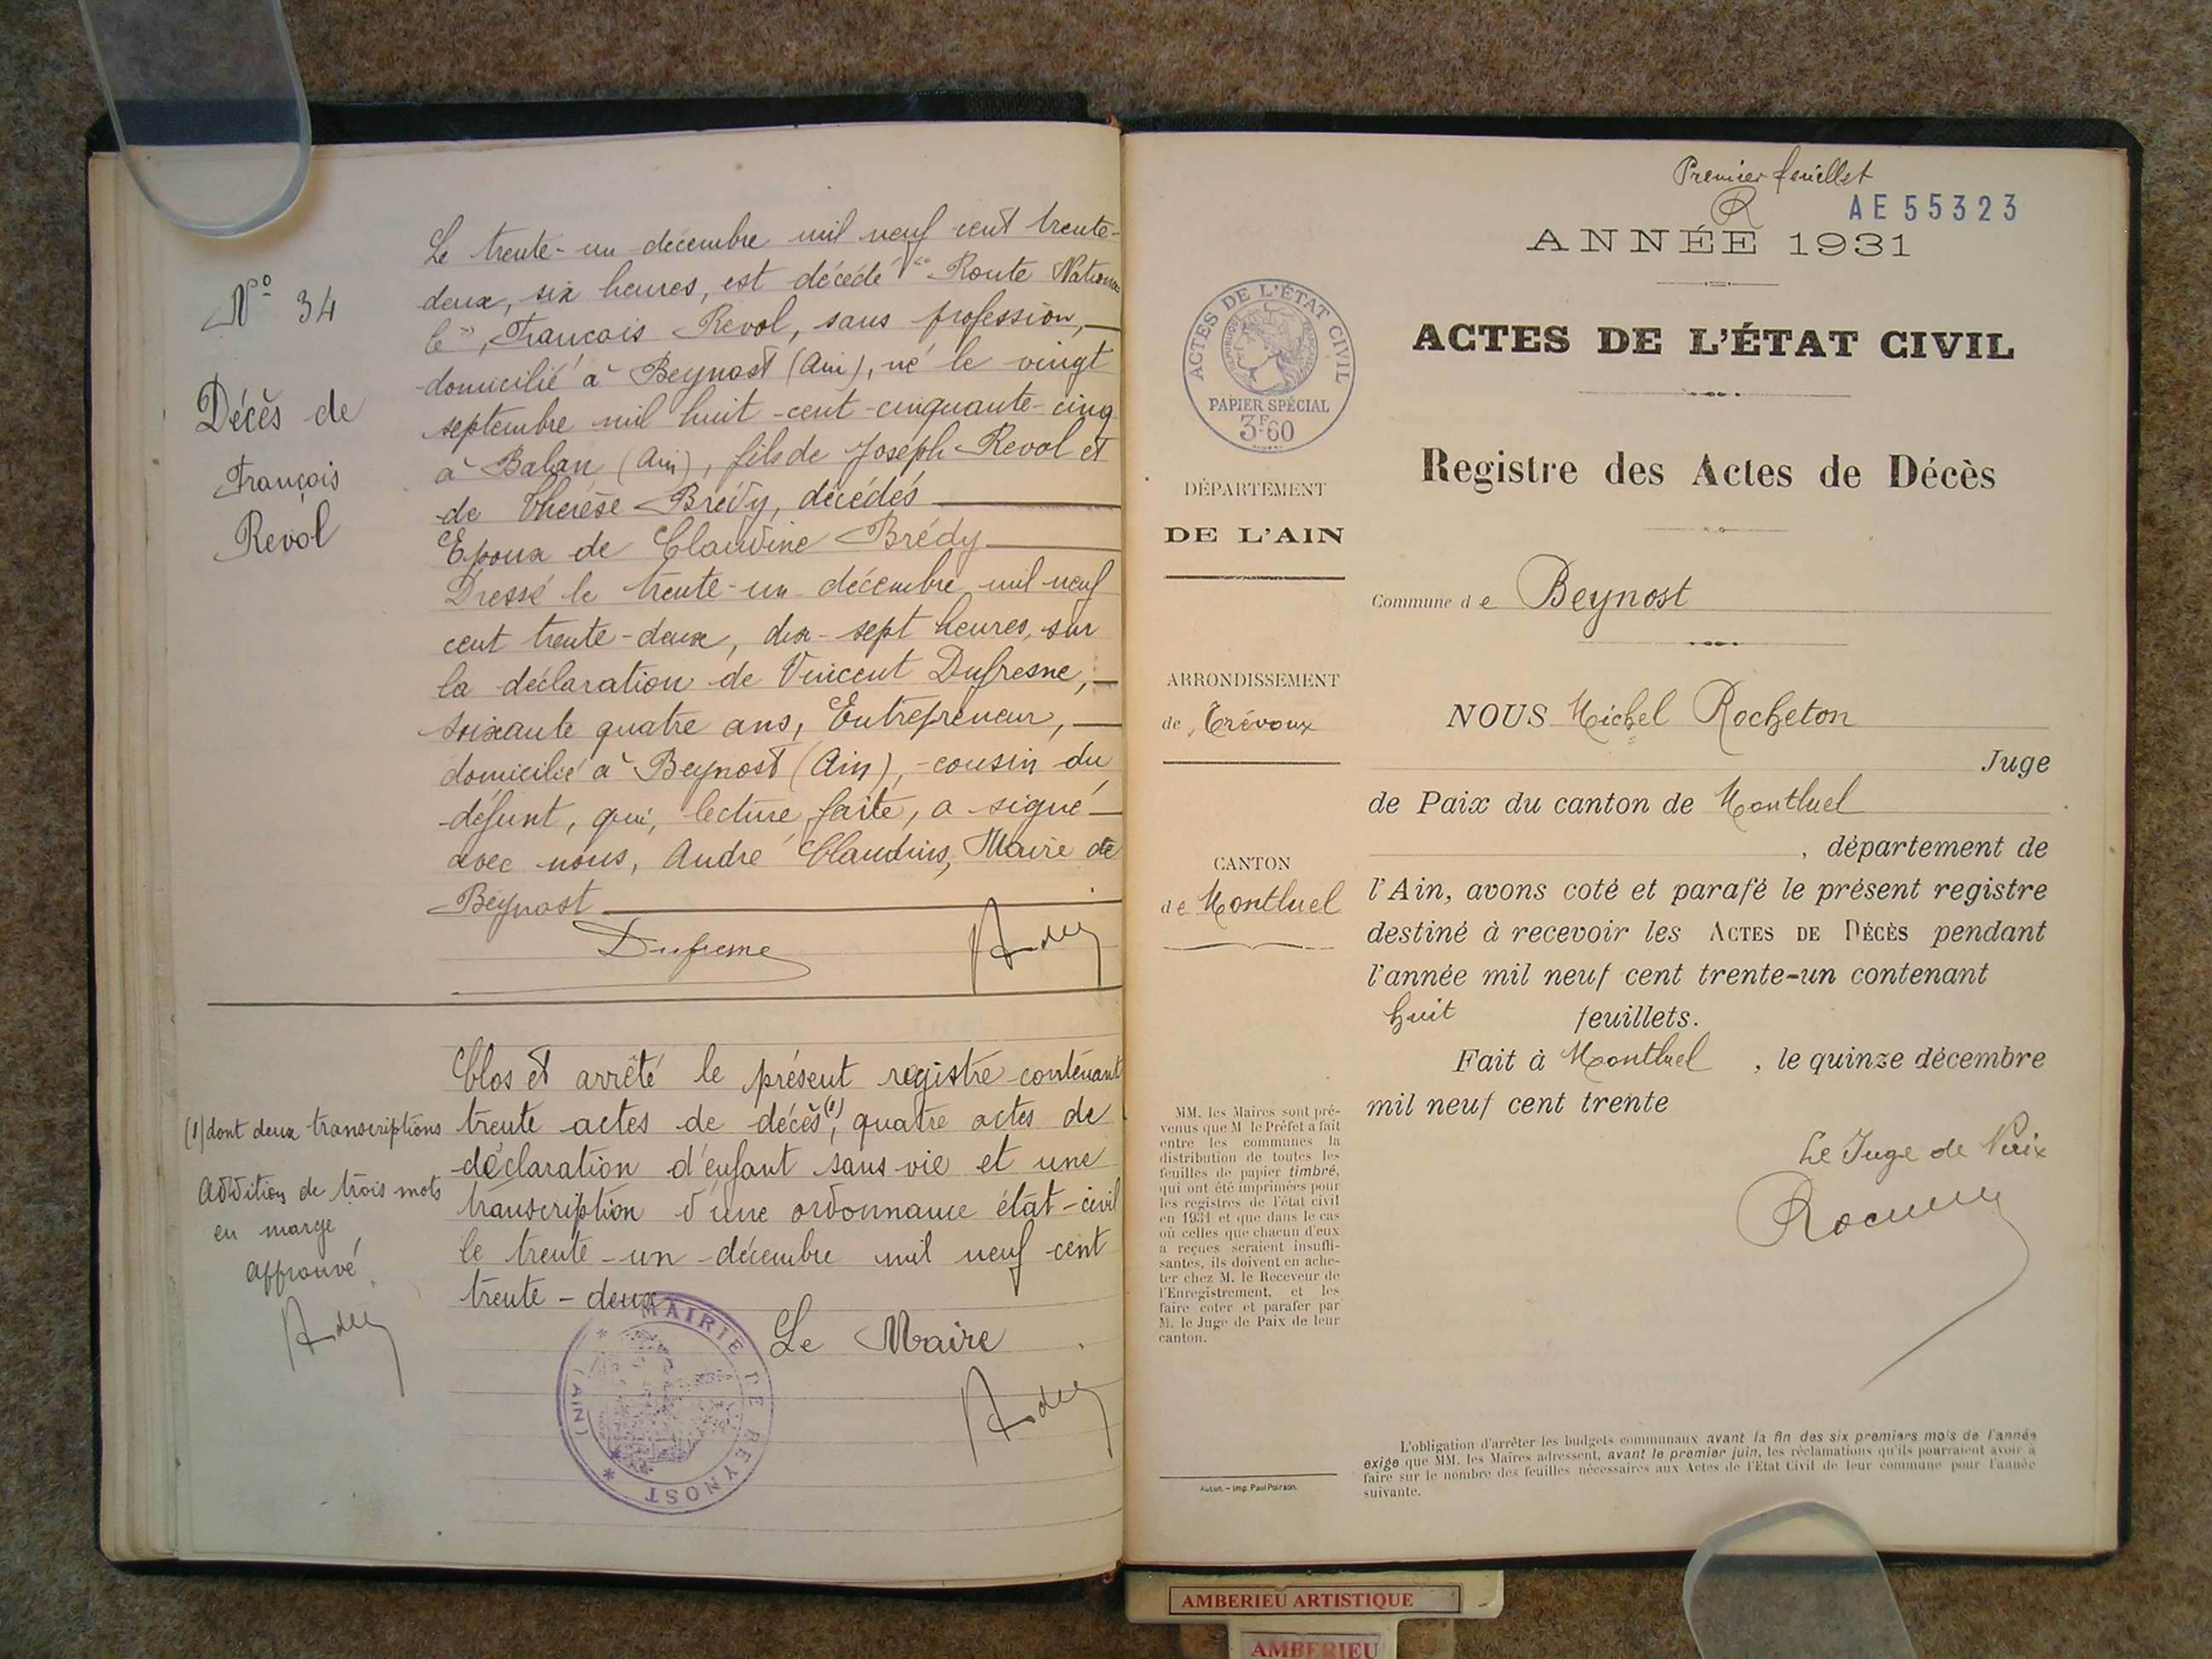 N° 34
Décès de
François
Revol
Le trente-un décembre mil neuf cent trente-
deux, six heures, est décédé "Route Nationa-
le", François Revol, sans profession,
domicilié à Beynost (Ain), né le vingt
septembre mil huit-cent-cinquante-cinq
à Balan (Ain), fils de Joseph Revol et
de Thérèse Brédy, décédés
Epoux de Claudine Brédy
Dressé le trente-un décembre mil neuf
cent trente-deux, dix-sept heures, sur
la déclaration de Vincent Dufresne,
soixante quatre ans, Entrepreneur,
domicilié à Beynost (Ain), cousin du
défunt, qui, lecture faite, a signé
avec nous, André Claudius, Maire de
Beynost
Dufresne
André
Clos et arrêté le présent registre contenant
trente actes de décès(1), quatre actes de
déclaration d'enfant sans vie et une
transcription d'une ordonnance état-civil
le trente-un décembre mil neuf cent
trente-deux
(1) dont deux transcriptions
Addition de trois mots
en marge
approuvé
André
Le Maire
MAIRIE DE BEYNOST
(AIN)
André
Premier feuillet
R
AE 55323
ANNÉE 1931
ACTES DE L'ÉTAT CIVIL
Registre des Actes de Décès
ACTES DE L'ÉTAT CIVIL
PAPIER SPÉCIAL
3F60
DÉPARTEMENT
DE L'AIN
ARRONDISSEMENT
de Trévoux
CANTON
de Montluel
Commune de Beynost
NOUS Michel Rocheton
Juge
de Paix du canton de Montluel
, département de
l'Ain, avons coté et parafé le présent registre
destiné à recevoir les ACTES DE DÉCÈS pendant
l'année mil neuf cent trente-un contenant
huit feuillets.
Fait à Montluel, le quinze décembre
mil neuf cent trente
Le Juge de Paix
MM. les Maires sont pré-
venus que M le Préfet a fait
entre les communes la
distribution de toutes les
feuilles de papier timbré,
qui ont été imprimées pour
les registres de l'état civil
en 1931 et que dans le cas
où celles que chacun d'eux
a reçues seraient insuffi-
santes, ils doivent en ache-
ter chez M. le Receveur de
l'Enregistrement, et les
faire coter et parafer par
M. le Juge de Paix de leur
canton.
Autun. – Imp. Paul Poirson.
L'obligation d'arrêter les budgets communaux avant la fin des six premiers mois de l'année
exige que MM. les Maires adressent, avant le premier juin, les réclamations qu'ils pourraient avoir à
faire sur le nombre des feuilles nécessaires aux Actes de l'État Civil de leur commune pour l'année
suivante.
AMBERIEU ARTISTIQUE
AMBERIEU